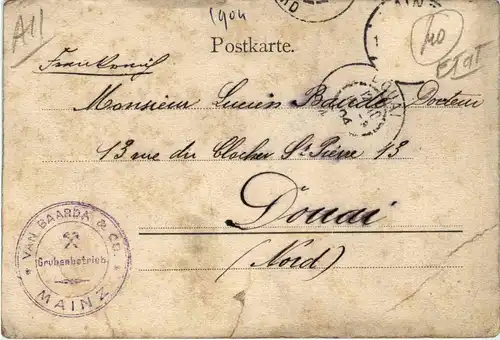 A11
1904
MAINZ
40
ETAT
Postkarte.
Frankreich
Monsieur Lucien Docteur
DOUAI
04
13 rue du Clocher St Pierre 13
Douai
(Nord)
VAN BAARDA & CO.
Grubenbetrieb
MAINZ